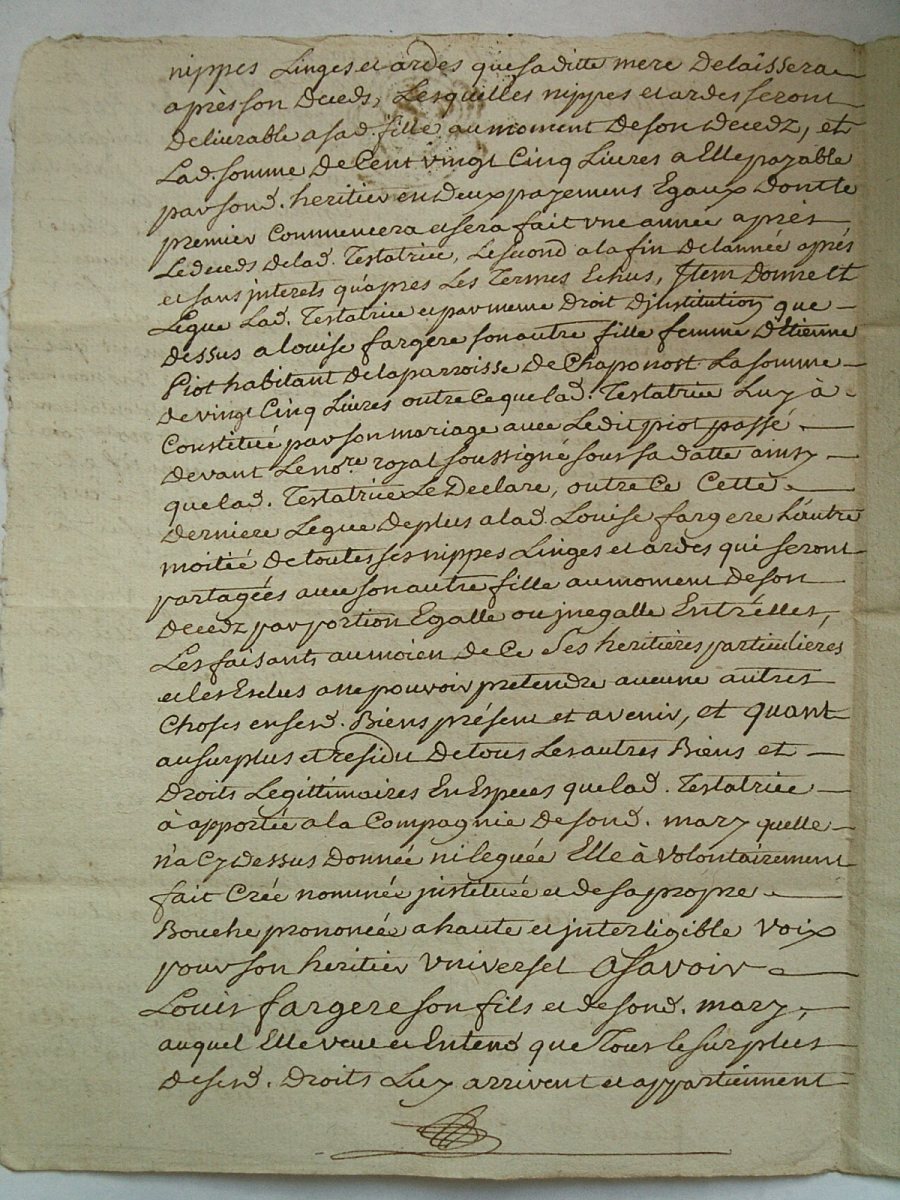 nippes Linges et ardes que sa ditte mere Delaissera
après son Deceds, Lesquelles nippes et ardes seront
Deliurable a sad. fille au moment De son Decedz, et
Lad. somme De Cent vingt Cinq Liures a Elle payable
par sond. heritier en Deux payemens Egaux Dont le
premier Commencera et sera fait vne année après
Le Deceds de lad. Testatrice, Le second a la fin De lannée après
et sans jnterets qu'apres Les Termes Echus, Jtem Donne et
Legue Lad. Testatrice et par meme Droit D'jnstitution que
Dessus a Louise fargere son autre fille femme D'Etienne
Piot habitant De la parroisse De Chaponost La somme
De vingt Cinq Liures outre Ce que lad. Testatrice Luy à
Constitué par son mariage auec Le dit piot passé
Devant Le nore. royal soussigné sous sa datte ainsy
que lad. Testatrice Le Declare, outre Ce Cette
Derniere Legue De plus a lad. Louise fargere L'autre
moitiée De toutes ses nippes Linges et ardes qui seront
partagées auec son autre fille au moment De son
Decedz par portion Egalle ou jnegalle Entr'elles,
Les faisants au moien de Ce Ses heritières particulieres
et les Exclus a ne pouvoir pretendre aucune autres
Choses en sesd. Biens présent et avenir, et quant
au surplus et residu De tous Les autres Biens et
Droits Legittimaires En Especes que lad. Testatrice
à apportée a la Compagnie De sond. mary quelle
n'a Cy Dessus Donnée ni leguée Elle à Volontairement
fait Crée nommée jnstituée et de sa propre
Bouche prononcée a haute et jnterligible Voix
pour son heritier Vniversel a savoir
Louis fargere son fils et de sond. mary,
auquel Elle veut et Entend que Tous le surplus
De sesd. Droits Luy arrivent et appartiennent